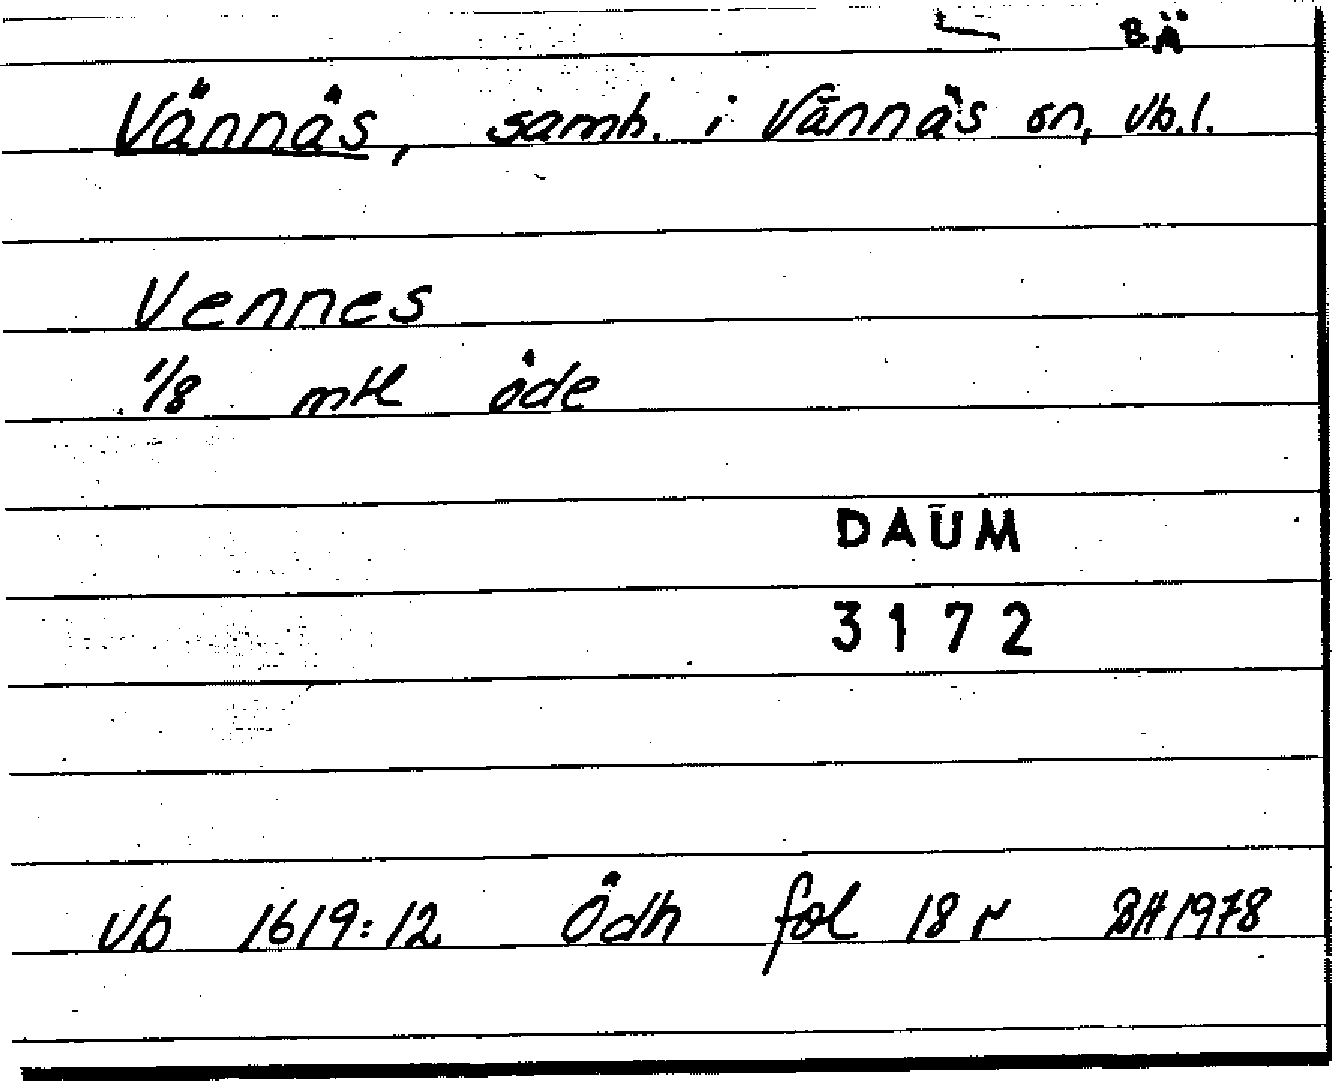 BÄ
Vännäs, samh. i Vännäs sn, Vb.l.
Vennes
1/8 mtl öde
DAUM
3172
Vb 1619:12 Ödh fol 18 r BH 1978